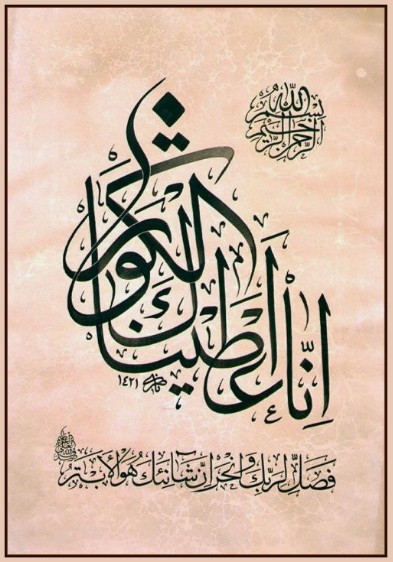 بسم الله الرحمن الرحيم
إِنَّا أَعْطَيْنَاكَ الْكَوْثَرَ
١٤٢١
فَصَلِّ لِرَبِّكَ وَانْحَرْ إِنَّ شَانِئَكَ هُوَ الْأَبْتَرُ